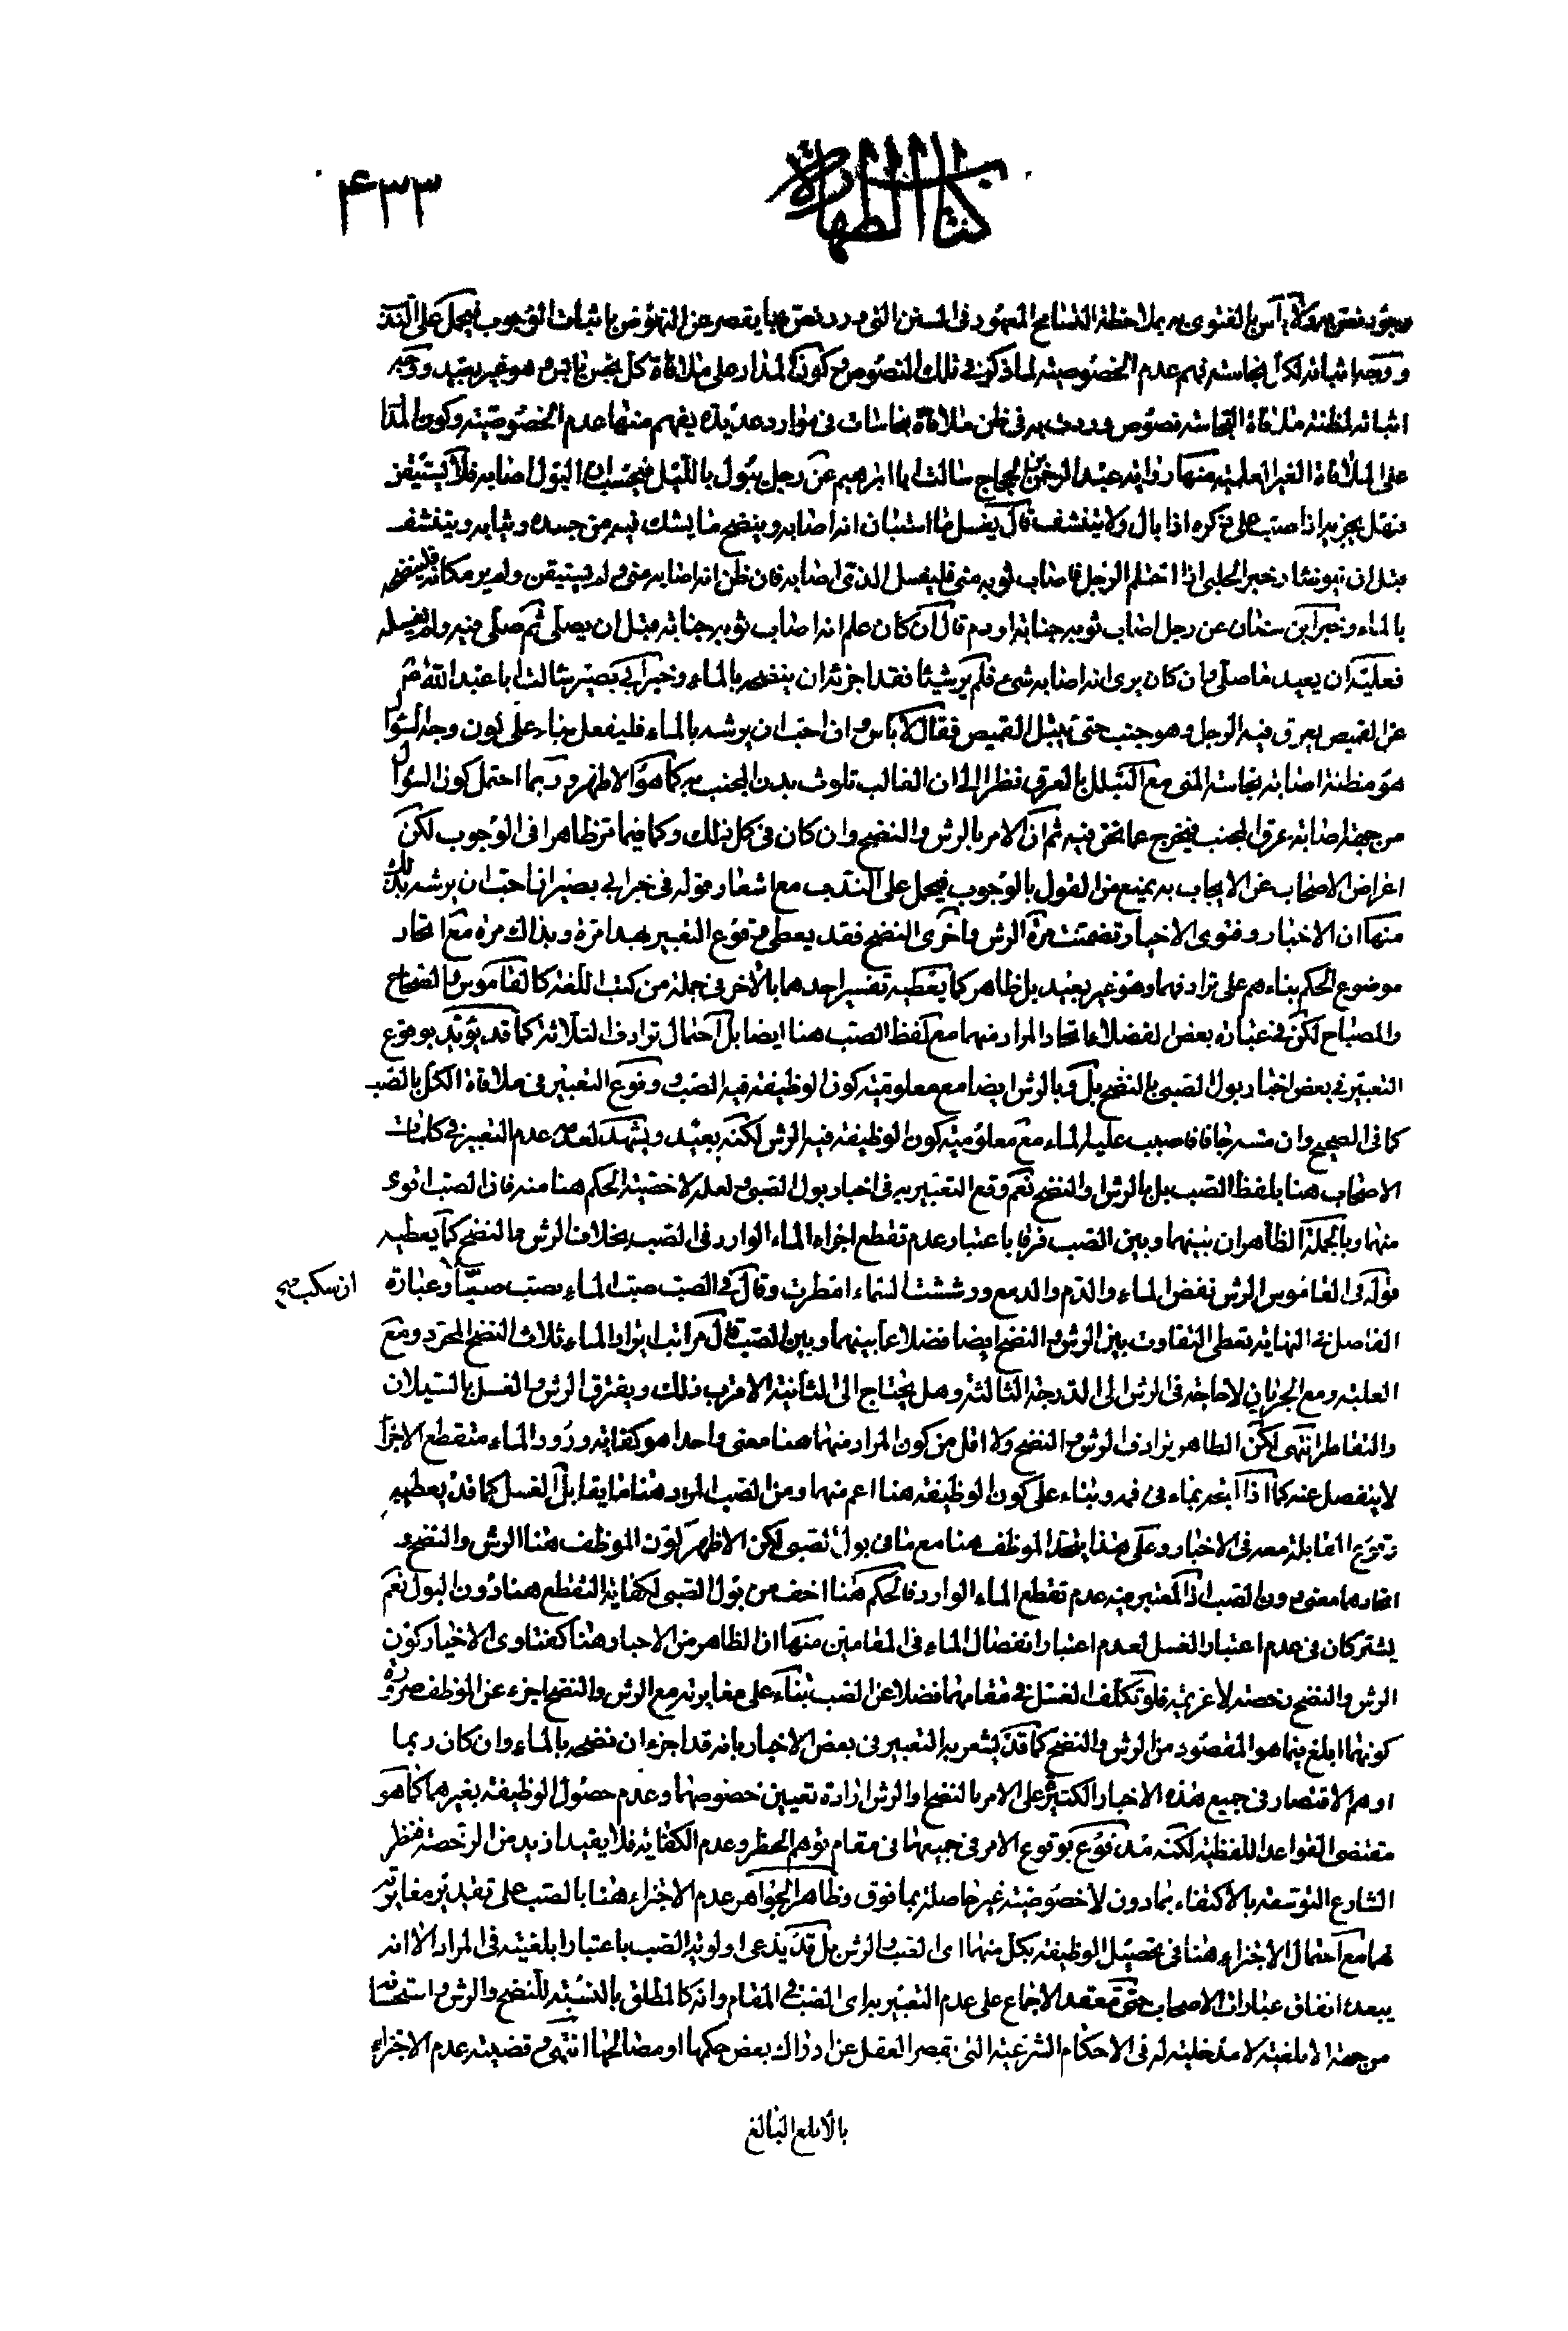 كتاب الطهارة
۴۳۳
بالفتوى به بملاحظة التسامح المعهود فى السنن التى ورد نص بها يقصر عن النهوض باثبات الوجوب فيحمل على الندب
ووجه اثباته لكل نجاسة فهم عدم الخصوصية لما ذكر فى تلك النصوص وكون المدار على ملاقاة كل نجس يابس وهو غير بعيد ووجه
اثباته لمظنة ملاقاة النجاسة نصوص وردت به فى ظن ملاقاة نجاسات فى موارد عديدة يفهم منها عدم الخصوصية وكون المدا
على الملاقاة الغير العلمية منها رواية عبد الرحمن بن الحجاج سالت ابا ابراهيم عن رجل يبول بالليل فيحسب ان البول اصابه فلا يستيقن
فهل يجزيه اذا صب على ذكره اذا بال ولا يتنشف قال يغسل ما استبان انه اصابه وينضح ما يشك فيه من جسده وثيابه ويتنشف
قبل ان يتوضأ وخبر الحلبى اذا احتلم الرجل فاصاب ثوبه منى فليغسل الذى اصابه فان ظن انه اصابه منى ولم يستيقن ولم ير مكانه فلينضحه
بالماء وخبر ابن سنان عن رجل اصاب ثوبه جنابة او دم قال ان كان علم انه اصاب ثوبه جنابة قبل ان يصلى ثم صلى فيه ولم يغسله
فعليه ان يعيد ما صلى وان كان يرى انه اصابه شىء فلم ير شيئا فقد اجزئه ان ينضحه بالماء وخبر ابى بصير سالت ابا عبد الله
عن القميص يعرق فيه الرجل وهو جنب حتى يبتل القميص فقال لا باس وان احب ان يرشه بالماء فليفعل بناء على كون وجه السؤال
هو مظنة اصابة نجاسة المنى مع التبلل بالعرق نظرا الى ان الغالب تلوث بدن الجنب به كما هو الاظهر وربما احتمل كون السؤال
من جهة اصابة عرق الجنب فيخرج عما نحن فيه ثم ان الامر بالرش والنضح وان كان فى كل ذلك وكما فيما مر ظاهرا فى الوجوب لكن
اعراض الاصحاب عن الايجاب به يمنع من القول بالوجوب فيحمل على الندب مع اشعار قوله فى خبر ابى بصير ان احب ان يرشه بذلك
منها ان الاخبار وفتوى الاخيار تضمنت مرة الرش واخرى النضح فقد يعطى وقوع التعبير بهذا مرة وبذاك مرة مع اتحاد
موضوع الحكم بناءهم على ترادفهما وهو غير بعيد بل ظاهر كما يعطيه تفسير احدهما بالاخر فى جملة من كتب اللغة كالقاموس والصحاح
والمصباح لكن فى عبارة بعض الفضلاء اتحاد المراد منهما مع لفظ الصب هنا ايضا بل احتمال ترادف الثلاثة كما قد يؤيد بوقوع
التعبير فى بعض اخبار بول الصبى بالنضح بل وبالرش ايضا مع معلومية كون الوظيفة فيه الصب ووقوع التعبير فى ملاقاة الكلب بالصب
كما فى الصحيح وان مسه جافا فاصبب عليه الماء مع معلومية كون الوظيفة فيه الرش لكنه بعيد ويشهد لعدمه عدم التعبير فى كلمات
الاصحاب هنا بلفظ الصب بل بالرش والنضح نعم وقع التعبير به فى اخبار بول الصبى ولعله لاخفية الحكم هنا منه فان الصب اقوى
منهما وبالجملة الظاهر ان بينهما وبين الصب فرقا باعتبار عدم تقطع اجزاء الماء الوارد فى الصب بخلاف الرش والنضح كما يعطيه
قوله فى القاموس الرش نفض الماء والدم والدمع ورششت السماء امطرت وقال فى الصب صبب الماء يصب صبا وعبارة
ان سكب صح
الفاضل فى النهاية تعطى التفاوت بين الرش والنضح ايضا فضلا عما بينهما وبين الصب قال مراتب ايراد الماء ثلاث النضح المجرد ومع
الغلبة ومع الجريان لا حاجة فى الرش الى الدرجة الثالثة وهل يحتاج الى الثانية الاقرب ذلك ويفترق الرش والغسل بالسيلان
والتقاطر انتهى لكن الظاهر ترادف الرش والنضح ولا اقل من كون المراد منهما هنا معنى واحدا هو كفاية ورود الماء متقطع الاجزاء
وقوع المقابلة معه فى الاخبار وعلى هذا يتحد الموظف هنا مع ما فى بول الصبى لكن الاظهر كون الموظف هنا الرش والنضح و
اتحادهما معنى دون الصب اذ المعتبر فيه عدم تقطع الماء الوارد فالحكم هنا اخف من بول الصبى لكفاية التقطع هنا دون البول نعم
يشتركان فى عدم اعتبار الغسل لعدم اعتبار انفصال الماء فى المقامين منها ان الظاهر من الاخبار هنا كفتاوى الاخيار كون
الرش والنضح رخصة لا عزيمة فلو تكلف الغسل فى مقامهما فضلا عن الصب بناء على مغايرته مع الرش والنضح اجزء عن الموظف ضرورة
كونهما ابلغ فيما هو المقصود من الرش والنضح كما قد يشعر به التعبير فى بعض الاخبار بانه قد اجزءه ان ينضحه بالماء وان كان ربما
اوهم الاقتصار فى جميع هذه الاخبار الكثيرة على الامر بالنضح او الرش ارادة تعيين خصوصهما وعدم حصول الوظيفة بغيرهما كما هو
مقتضى القواعد اللفظية لكنه مدفوع بوقوع الامر فى جميعها فى مقام توهم الحظر وعدم الكفاية فلا يفيد ازيد من الرخصة فنظر
الشارع التوسعة بالاكتفاء بما دون لا خصوصية غير حاصلة بما فوق وظاهر الجواهر عدم الاجتزاء هنا بالصب على تقدير مغايرته
لهما مع احتمال الاجتزاء هنا فى تحصيل الوظيفة بكل منهما اى الصب والرش بل قد يدعى اولوية الصب باعتبار ابلغيته فى المراد الا انه
يبعده اتفاق عبارات الاصحاب حتى معقد الاجماع على عدم التعبير به اى الصب فى المقام وانه كالمطلق بالنسبة للنضح والرش واستحسانه
من جهة الابلغية لا مدخلية له فى الاحكام الشرعية التى يقصر العقل عن ادراك بعض حكمها او مصالحها انتهى وقضيته عدم الاجتزاء
بالابلغ البالغ